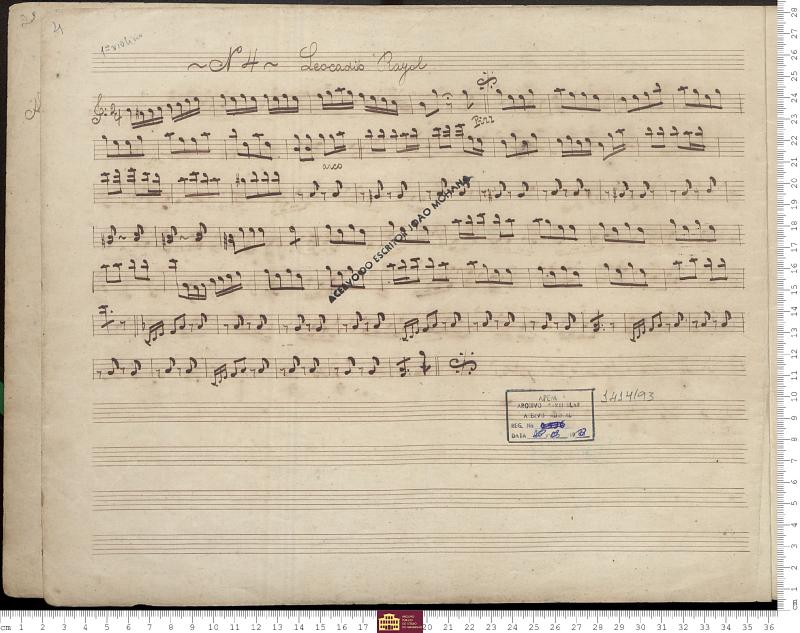 4
1º violino
~ Nº 4 ~ Leocadio Rayol
Pizz
arco
ACERVO DO ESCRITOR JOÃO MOHANA
APEM
ARQUIVO
REG. No
DATA
1414/93
cm 1 2 3 4 5 6 7 8 9 10 11 12 13 14 15 16 17 20 21 22 23 24 25 26 27 28 29 30 31 32 33 34 35 36
29 28 27 26 25 24 23 22 21 20 19 18 17 16 15 14 13 12 11 10 9 8 7 6 5 4 3 2 1 cm